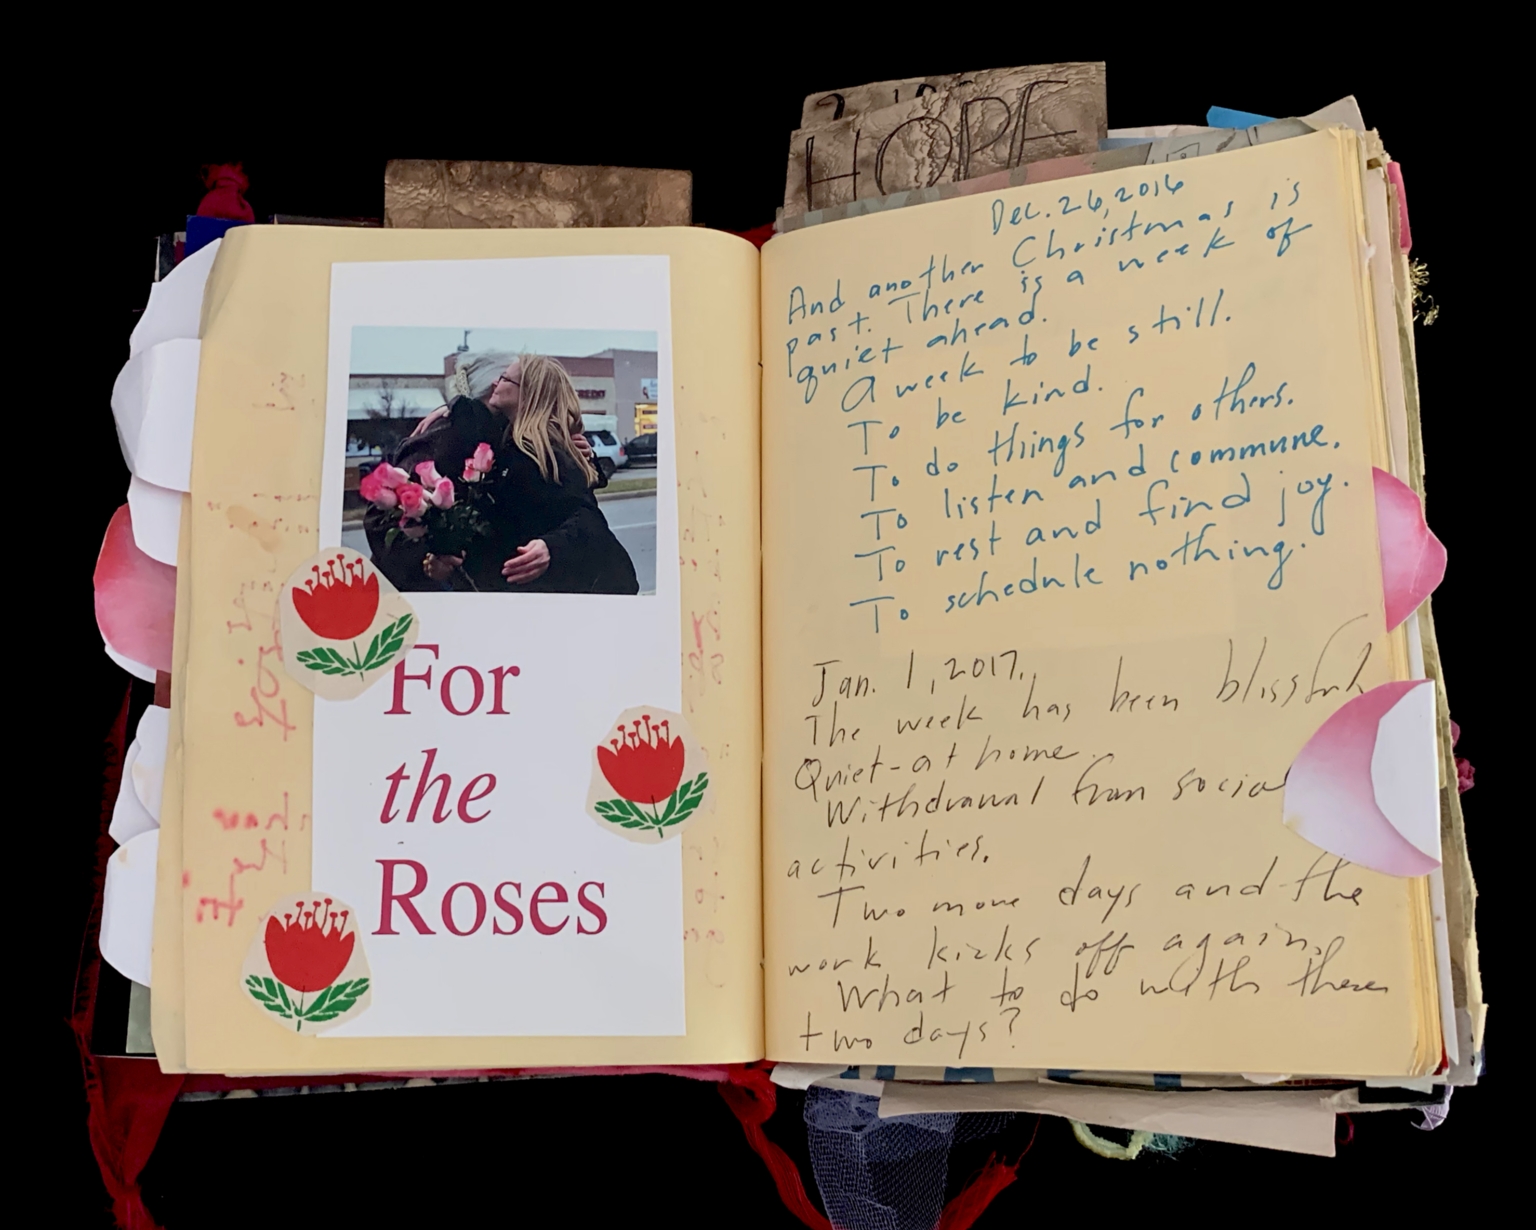 HOPE
For
the
Roses
Dec. 26, 2016
And another Christmas is
past. There is a week of
quiet ahead.
A week to be still.
To be kind.
To do things for others.
To listen and commune.
To rest and find joy.
To schedule nothing.
Jan. 1, 2017.
The week has been blissful
Quiet - at home.
Withdrawal from social
activities.
Two more days and the
work kicks off again.
What to do with these
two days?